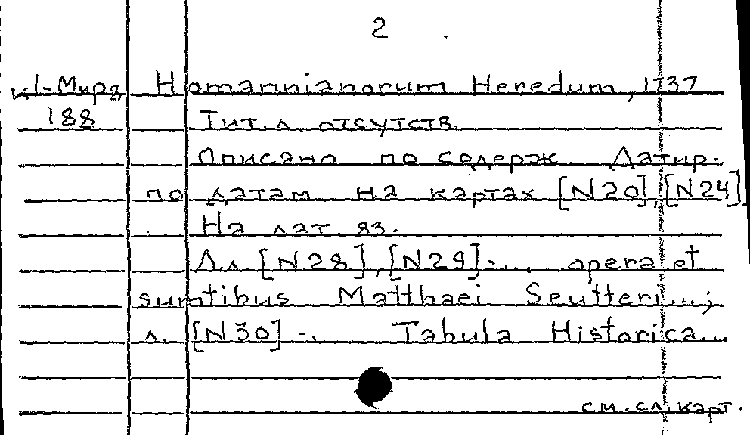 2
к1-Мира Homannianorum Heredum, 1737
188 Тит. л отсутств.
Описано по содерж. Датир.
по датам на картах [N20], [N24]
На лат яз.
Лл [N28], [N29] -... opera et
sumtibus Matthaei Seutteri...;
л. [N30] -. Tabula Historica...
см. сл. карт.